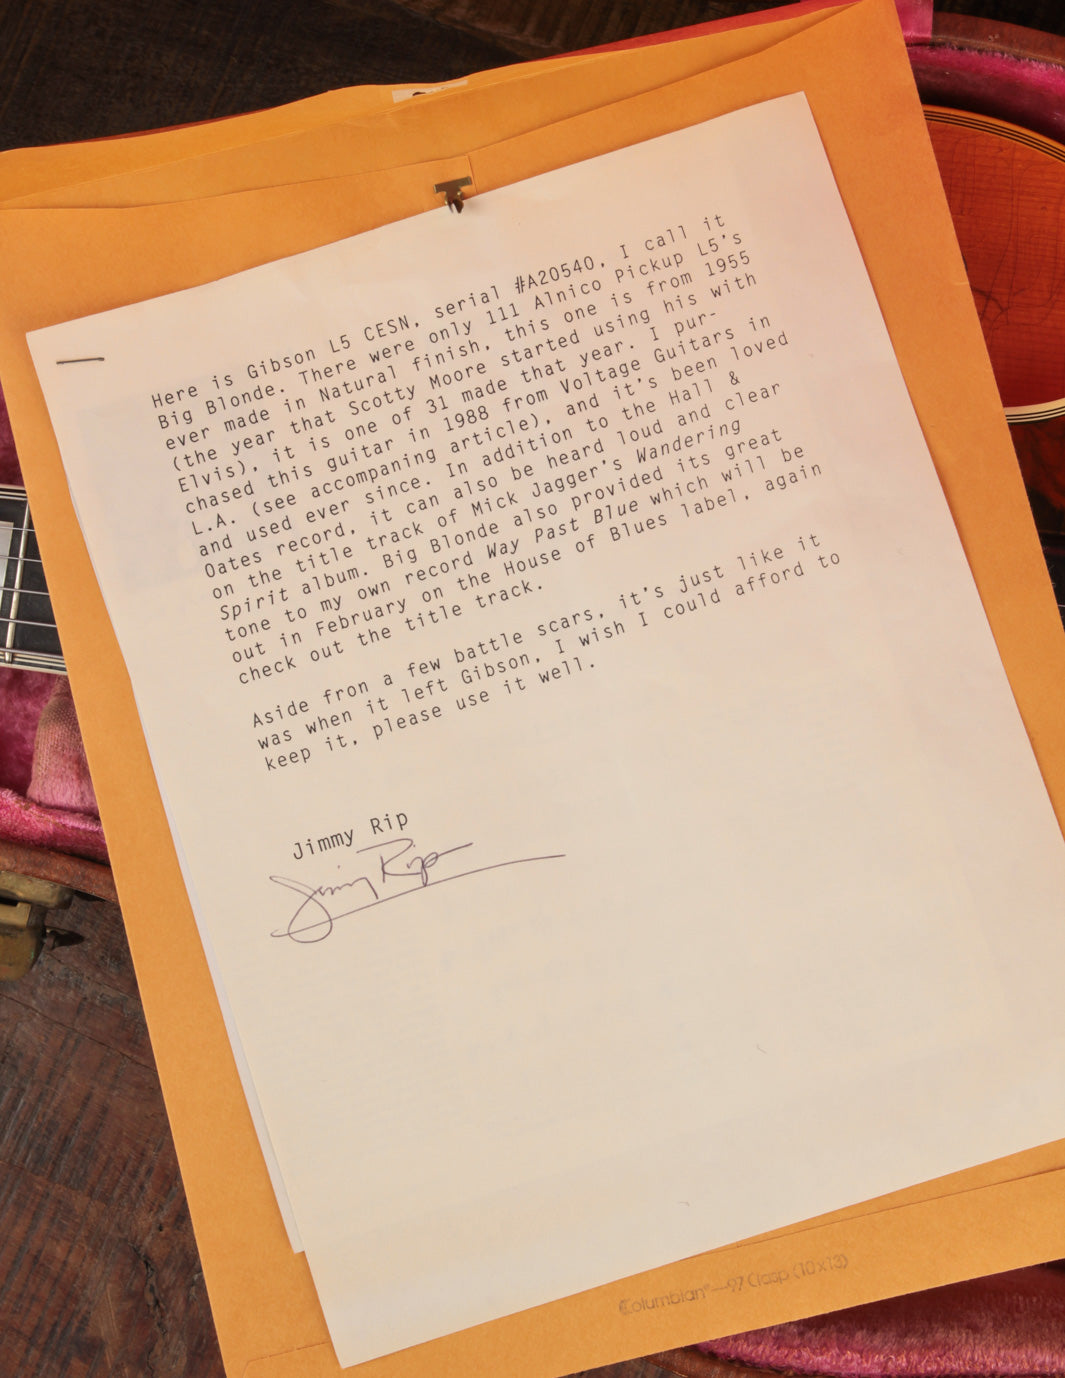 Here is Gibson L5 CESN, serial #A20540, I call it
Big Blonde. There were only 111 Alnico Pickup L5's
ever made in Natural finish, this one is from 1955
(the year that Scotty Moore started using his with
Elvis), it is one of 31 made that year. I pur-
chased this guitar in 1988 from Voltage Guitars in
L.A. (see accompaning article), and it's been loved
and used ever since. In addition to the Hall &
Oates record, it can also be heard loud and clear
on the title track of Mick Jagger's Wandering
Spirit album. Big Blonde also provided its great
tone to my own record Way Past Blue which will be
out in February on the House of Blues label, again
check out the title track.
Aside fron a few battle scars, it's just like it
was when it left Gibson, I wish I could afford to
keep it, please use it well.
Jimmy Rip
Jimmy Rip
Columbian®—97 Clasp (10x13)